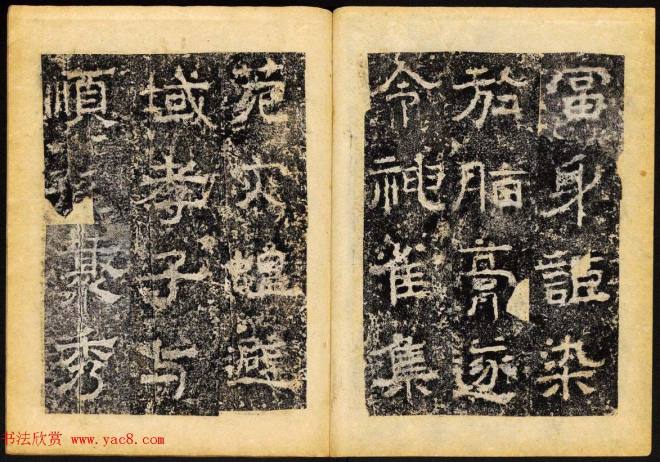 冨身詎染
於脂膏遂
令神雀集
苑灾蝗避
域孝子与
順兼秀
书法欣赏 www.yac8.com